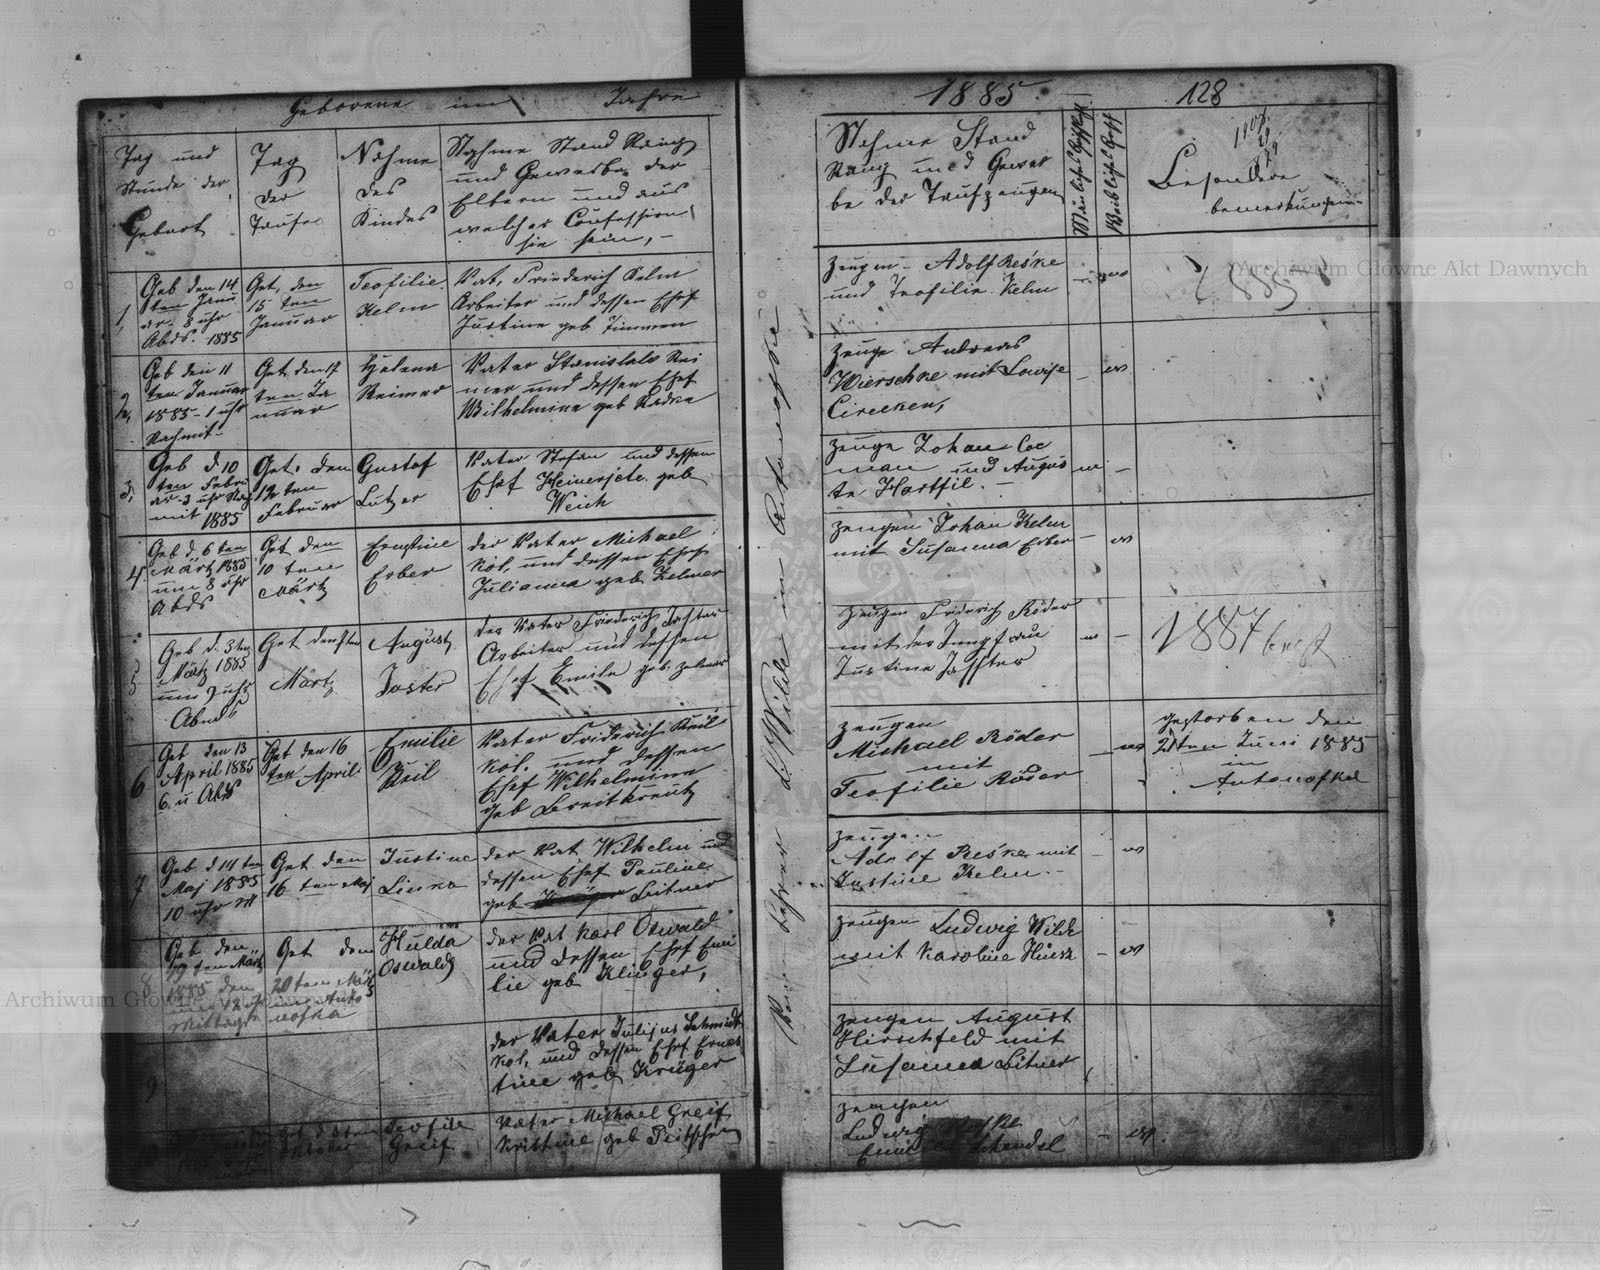 Geborene im Jahre
Tag und
Stunde der
Geburt
Tag
der
Taufe
Nahme
des
Kindes
Nahme Stand Rang
und Gewerbe der
Eltern und aus
welcher Confession
sie sein,
1, Geb den 14
ten Janu
ar 8 uhr
Abds. 1885
Get, den
15 ten
Januar
Teofilie
Kelm
Vat, Friederich Kelm
Arbeiter und dessen Ehef
Justine geb Timmen
2, Geb den 11
ten Januar
1885 - 1 uhr
Nachmit-
Get den 17
ten Ja
nuar
Helena
Reimer
Vater Stanislaw Rei
mer und dessen Ehef
Wilhelmine geb Radke
3, Geb d. 10
ten Febru
ar 3 uhr Nach
mit 1885
Get. den
12 ten
Februar
Gustof
Lutzer
Vater Stefan und dessen
Ehef geb
Weich
4 Geb d. 6 ten
März 1885
um 8 uhr
Abds
Get den
10 ten
März
Ernstine
Erber
der Vater Michael
Kol, und dessen Ehef
Julianna geb Zelmer
5 Geb d. 3 ten
März 1885
um 9 uhr
Abends
Get den
März
August
Jaster
der Vater Friederich Jaster
Arbeiter und dessen
Ehef Emile geb. Zelmer
6 Get den 13
April 1885
6 u Abds
Get den 16
ten April
Emilie
Keil
Vater Friderich Keil
Kol. und dessen
Ehef Wilhelmine
geb Breitkreutz
7 Geb d 14 ten
Maj 1885
10 uhr M
Get den
16 ten Maj
Justine
Linke
der Vat Wilhelm und
dessen Ehef Pauline
geb Bitner
8 Geb den
19 ten März
1885 den
um 12 uhr
Mittags
Get den
20 ten März
in Anto
nofka
Hulda
Oswald
der Vat Karl Oswald
und dessen Ehef Emi
lie geb Klinger,
9
der Vater Julijus Schmidt
Kol, und dessen Ehef Ernes
tine geb Krüger
Get d
Oktober
Teofile
Greif
Vater Michael Greif
Kristine geb Peitsch
Lehrer Wilde in Antonofke
1885. 128
Nehme Stand
Rang und Gewer
be der Taufzeugen
Mänliches Geschlecht
Weibliches Gesch
Besondere
bemerkungen
Zeugen - Adolf Reske
und Teofilie Kelm
1885
Zeuge Andreas
Wierschke mit Lowise
Cirecken,
Zeuge Johan Loe
man und Augus
te Hartfil.
Zeugen Johan Kelm
mit Susanna Erber
Zeugen Friderich Röder
mit der Jungfrau
Justine Jasster
1887
Zeugen
Michael Röder
mit
Teofilie Röder
gestorben den
21 ten Juni 1885
in
Antonofke
Zeugen
Adolf Reske mit
Justine Kelm
Zeugen Ludwig Wilde
mit Karoline Hinz
Zeugen August
Hirschfeld mit
Susanna Bitner
Zeugen
Ludwig
Schendel
Archiwum Główne Akt Dawnych
Archiwum Główne Akt Dawnych